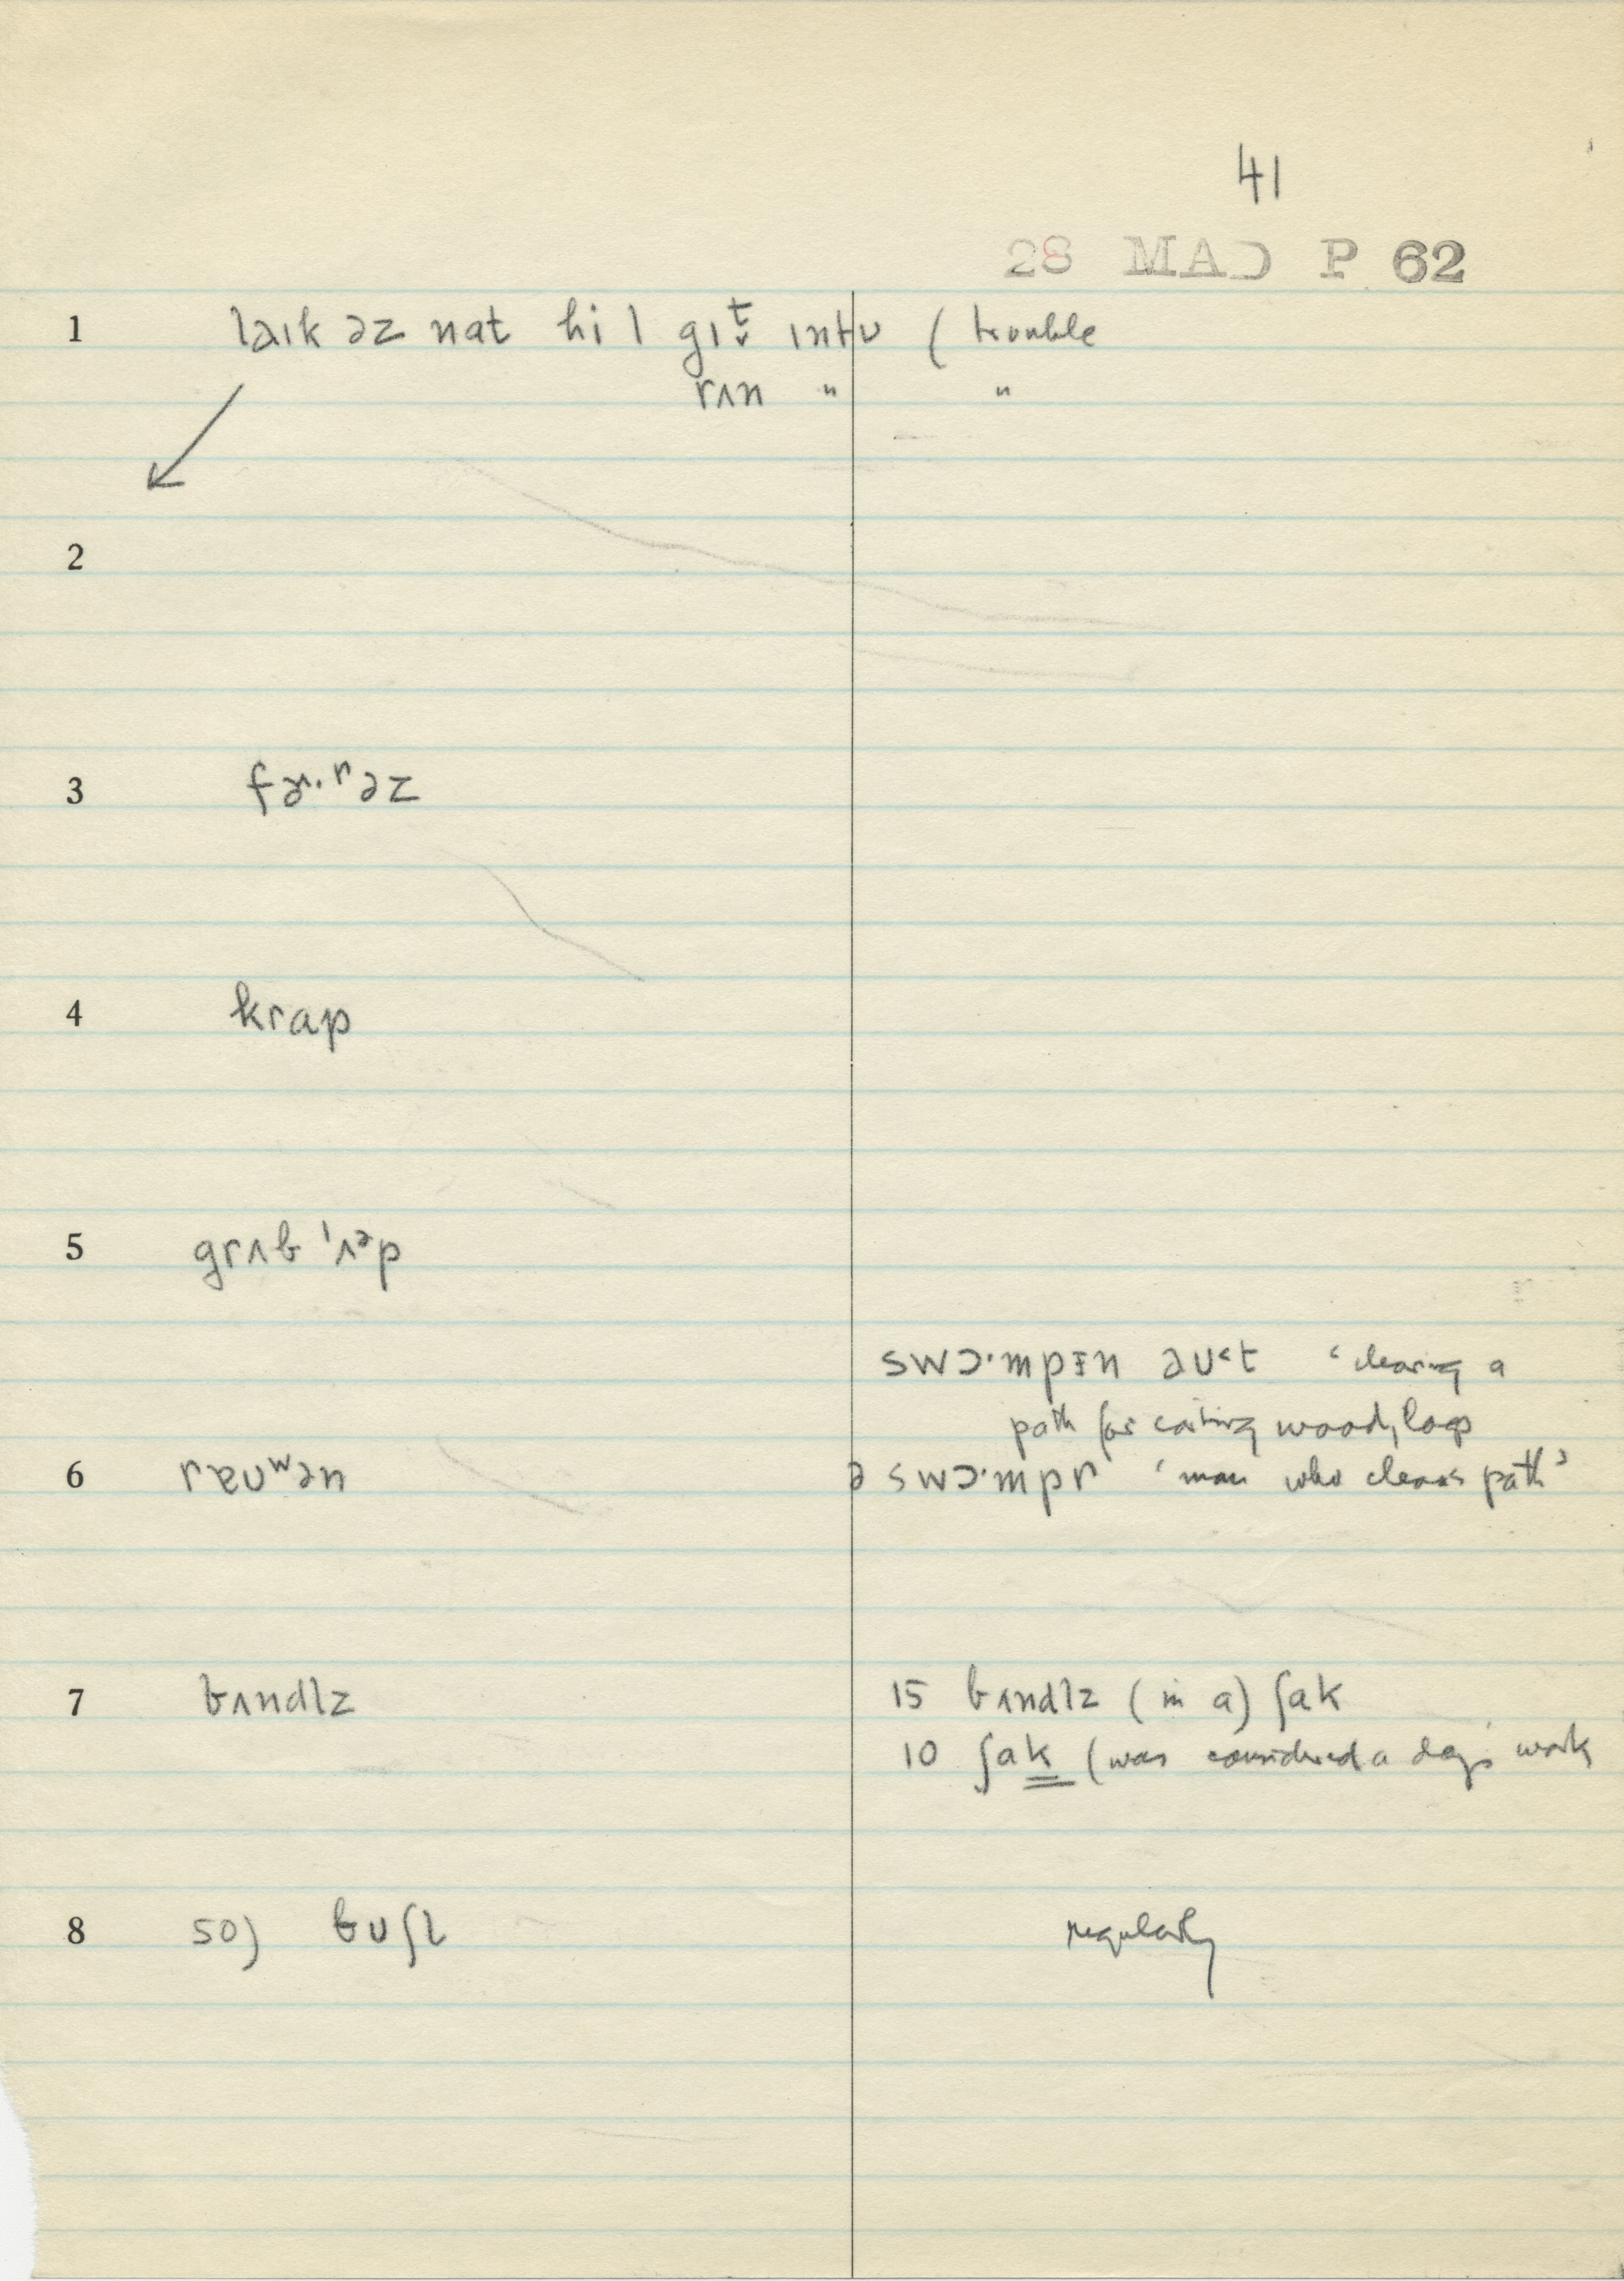 41
28 MAD P 62
1 laɪk əz nat hi l gɪt̬ ɪntʊ ( trouble
rʌn " "
2
3 fɚ·rəz
4 krap
5 grʌb ˈʌᵊp
swɔ·mpɪn əʊ˂t ‘clearing a
path for cutting wood, logs
6 rɐʊʷən ə swɔ·mpr ‘man who clears path’
7 bʌndlz 15 bʌndlz (in a) ʃak
10 ʃak (was considered a day's work
8 50) bʊʃl regularly